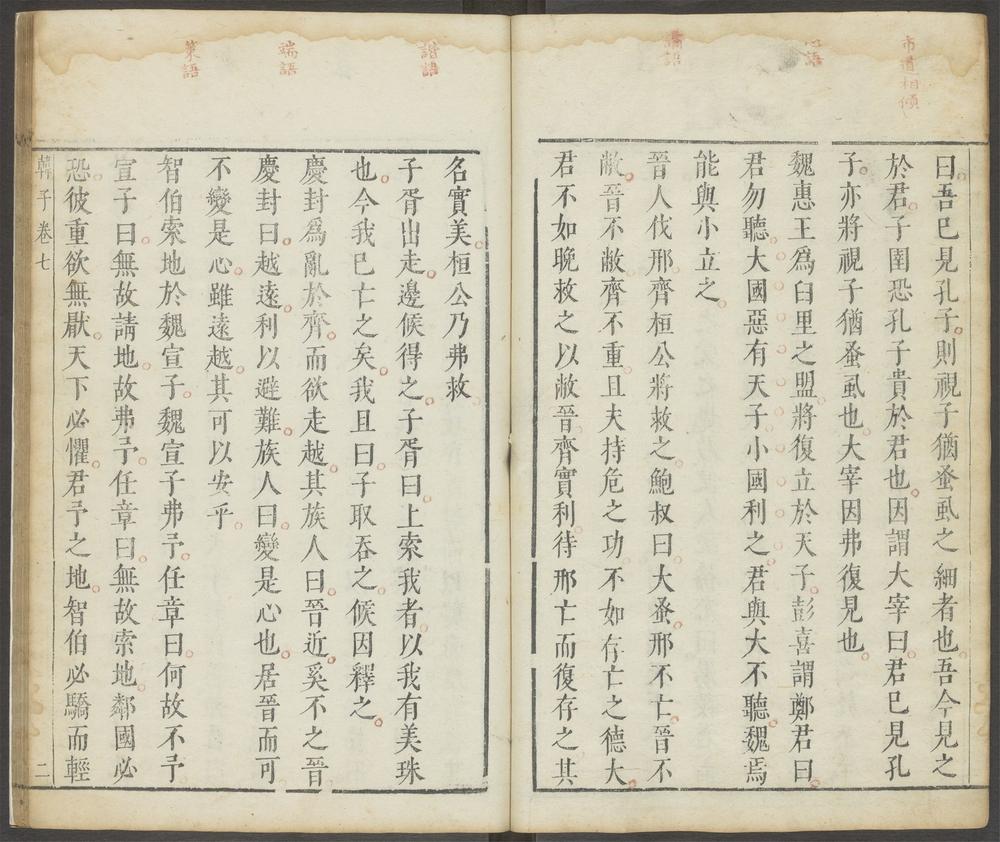 市道相傾
諧語
端語
策語
曰吾已見孔子則視子猶蚤虱之細者也吾今見之
於君子圉恐孔子貴於君也因謂大宰曰君已見孔
子亦將視子猶蚤虱也大宰因弗復見也
魏惠王爲臼里之盟將復立於天子彭喜謂鄭君曰
君勿聽大國惡有天子小國利之君與大不聽魏焉
能與小立之
晉人伐邢齊桓公將救之鮑叔曰大蚤邢不亡晉不
敝晉不敝齊不重且夫持危之功不如存亡之德大
君不如晚救之以敝晉齊實利待邢亡而復存之其
名實美桓公乃弗救
子胥出走邊候得之子胥曰上索我者以我有美珠
也今我已亡之矣我且曰子取吞之候因釋之
慶封爲亂於齊而欲走越其族人曰晉近奚不之晉
慶封曰越遠利以避難族人曰變是心也居晉而可
不變是心雖遠越其可以安乎
智伯索地於魏宣子魏宣子弗予任章曰何故不予
宣子曰無故請地故弗予任章曰無故索地鄰國必
恐彼重欲無厭天下必懼君予之地智伯必驕而輕
韓子卷七
二